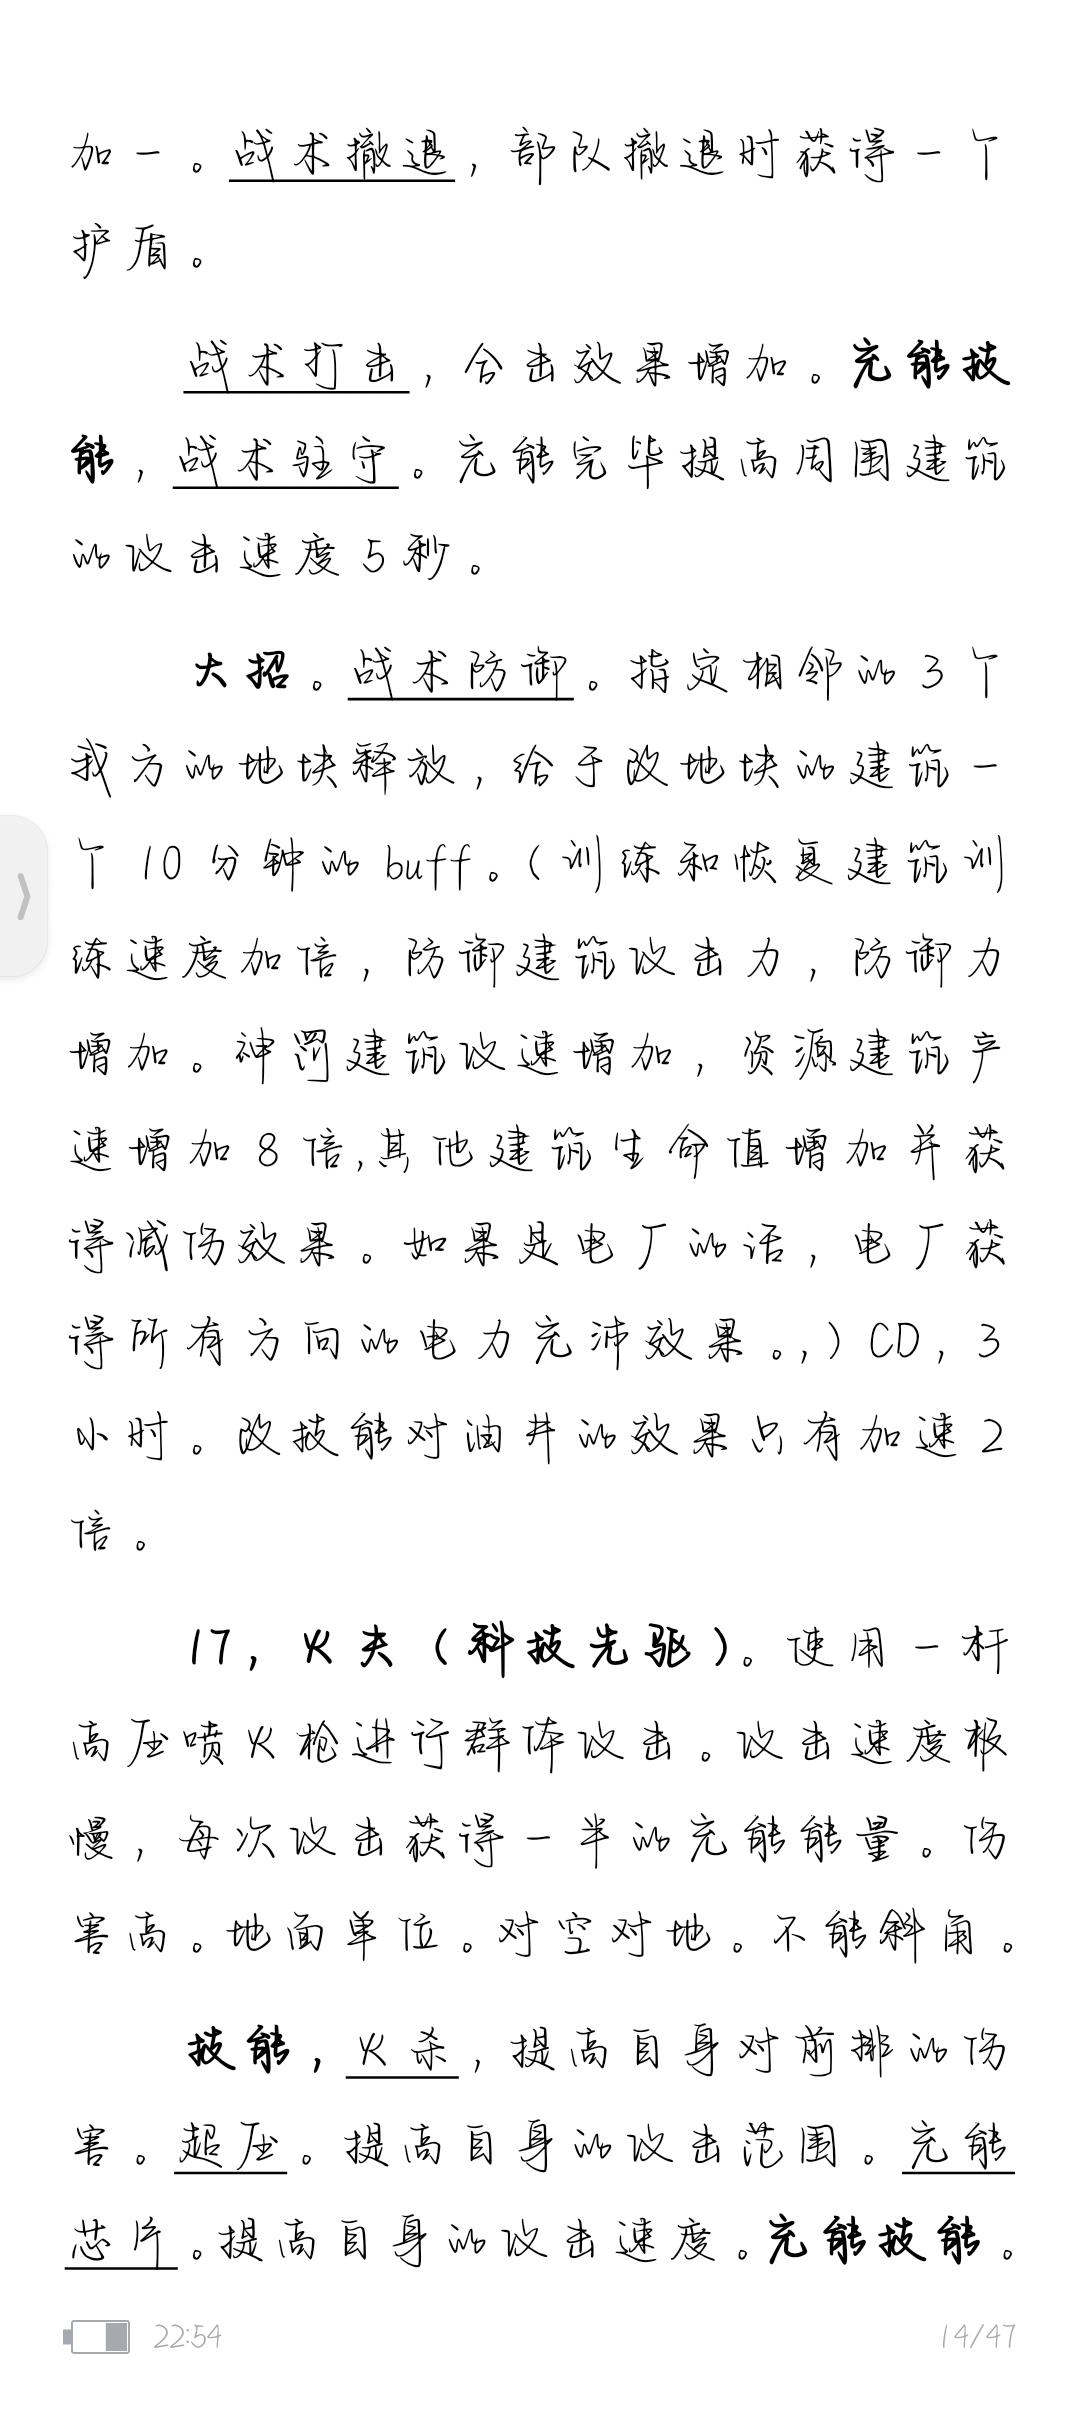 加一。战术撤退，部队撤退时获得一个
护盾。
战术打击，合击效果增加。充能技
能，战术驻守。充能完毕提高周围建筑
的攻击速度5秒。
大招。战术防御。指定相邻的3个
我方的地块释放，给于改地块的建筑一
个10分钟的buff。（训练和恢复建筑训
练速度加倍，防御建筑攻击力，防御力
增加。神罚建筑攻速增加，资源建筑产
速增加8倍,其他建筑生命值增加并获
得减伤效果。如果是电厂的话，电厂获
得所有方向的电力充沛效果。,）CD，3
小时。改技能对油井的效果只有加速2
倍。
17，火夫（科技先驱）。使用一杆
高压喷火枪进行群体攻击。攻击速度极
慢，每次攻击获得一半的充能能量。伤
害高。地面单位。对空对地。不能斜角。
技能，火杀，提高自身对前排的伤
害。超压。提高自身的攻击范围。充能
芯片。提高自身的攻击速度。充能技能。
22:54 14/47